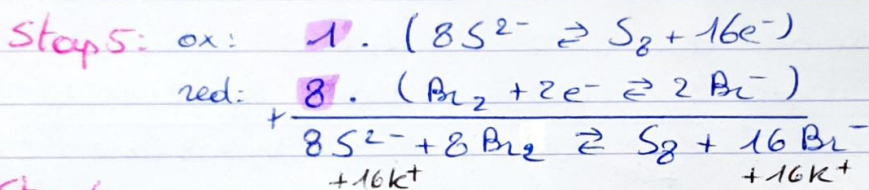 Stap 5: ox: 1 . (8S²⁻ ⇄ S₈ + 16e⁻)
red: 8 . (Br₂ + 2e⁻ ⇄ 2 Br⁻)
+
8S²⁻ + 8 Br₂ ⇄ S₈ + 16 Br⁻
+16K⁺ +16K⁺